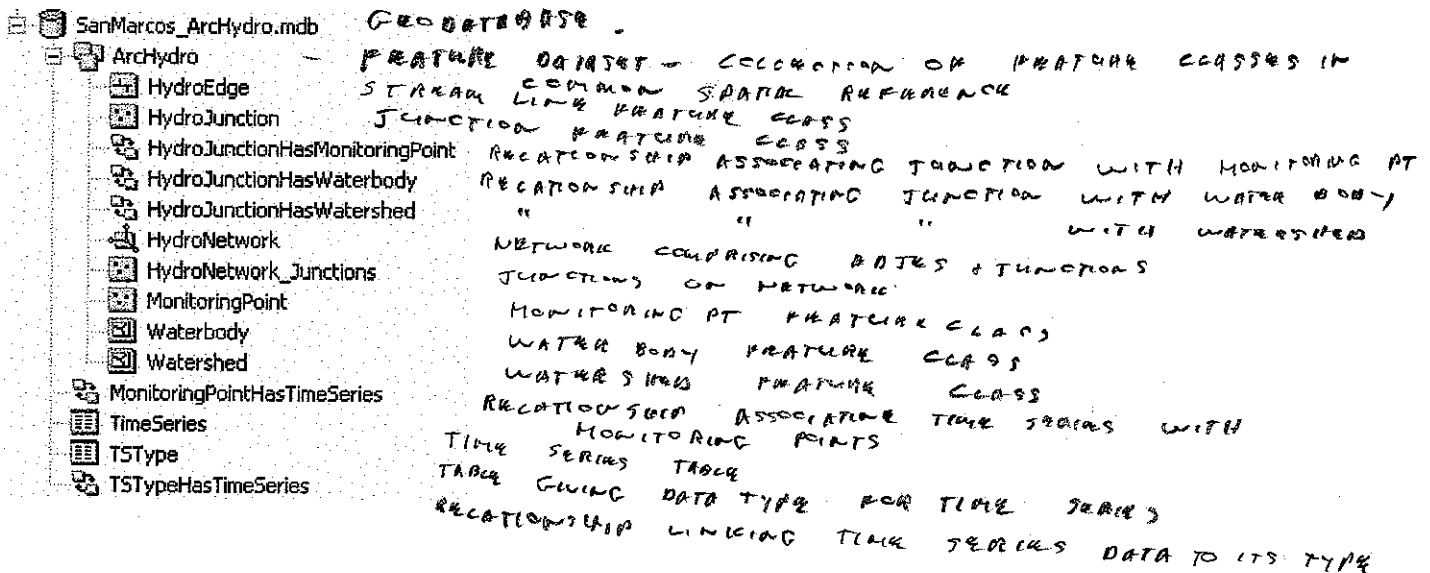 SanMarcos_ArcHydro.mdb GEODATABASE.
ArcHydro — FEATURE DATASET - COLLECTION OF FEATURE CLASSES IN
COMMON SPATIAL REFERENCE
HydroEdge STREAM LINE FEATURE CLASS
HydroJunction JUNCTION FEATURE CLASS
HydroJunctionHasMonitoringPoint RELATIONSHIP ASSOCIATING JUNCTION WITH MONITORING PT
HydroJunctionHasWaterbody RELATIONSHIP ASSOCIATING JUNCTION WITH WATER BODY
HydroJunctionHasWatershed " " " WITH WATERSHED
HydroNetwork NETWORK COMPRISING EDGES + JUNCTIONS
HydroNetwork_Junctions JUNCTIONS ON NETWORK
MonitoringPoint MONITORING PT FEATURE CLASS
Waterbody WATER BODY FEATURE CLASS
Watershed WATERSHED FEATURE CLASS
MonitoringPointHasTimeSeries RELATIONSHIP ASSOCIATING TIME SERIES WITH
MONITORING POINTS
TimeSeries TIME SERIES TABLE
TSType TABLE GIVING DATA TYPE FOR TIME SERIES
TSTypeHasTimeSeries RELATIONSHIP LINKING TIME SERIES DATA TO ITS TYPE